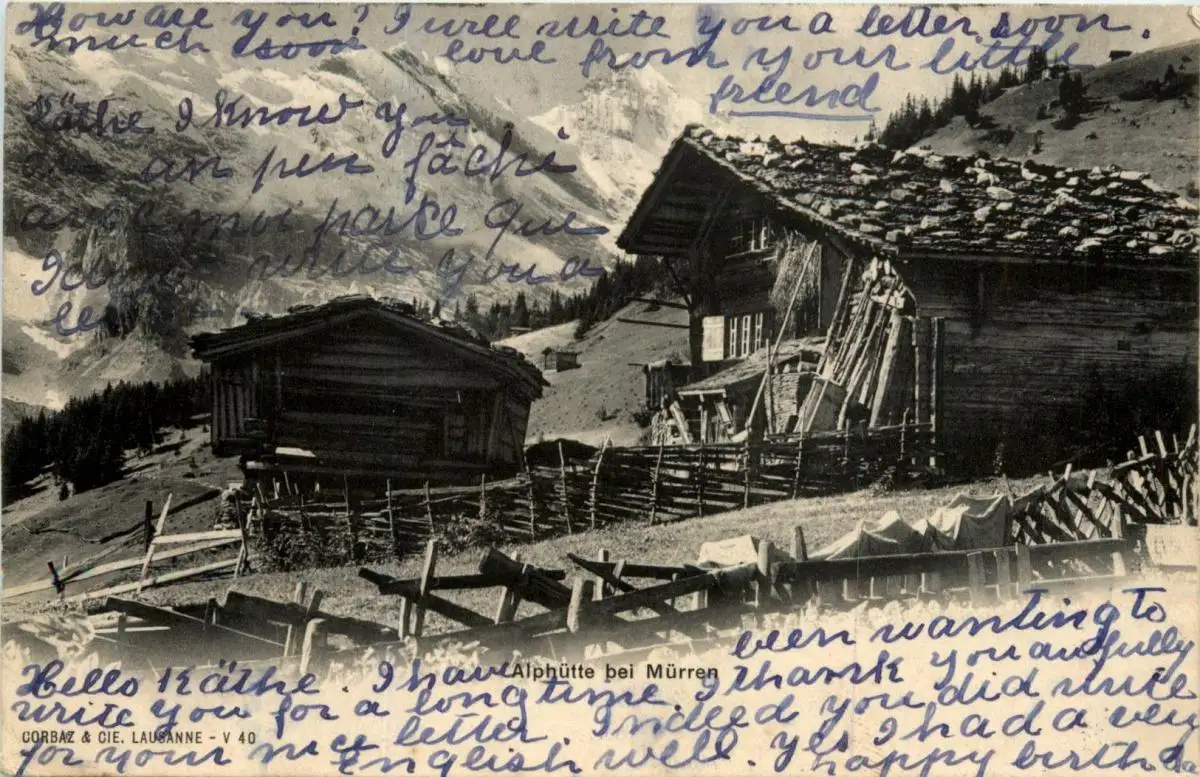 How are you? I will write you a letter soon.
much soon love from your little
friend
Käthe I know you
un peu fâché
avec moi parce que
I write you a
Alphütte bei Mürren
Hello Käthe. I have been wanting to
write you for a long time. I thank you awfully
for your nice letter. Indeed you did write
English well. Yes I had a very
happy birthd
CORBAZ & CIE. LAUSANNE - V 40